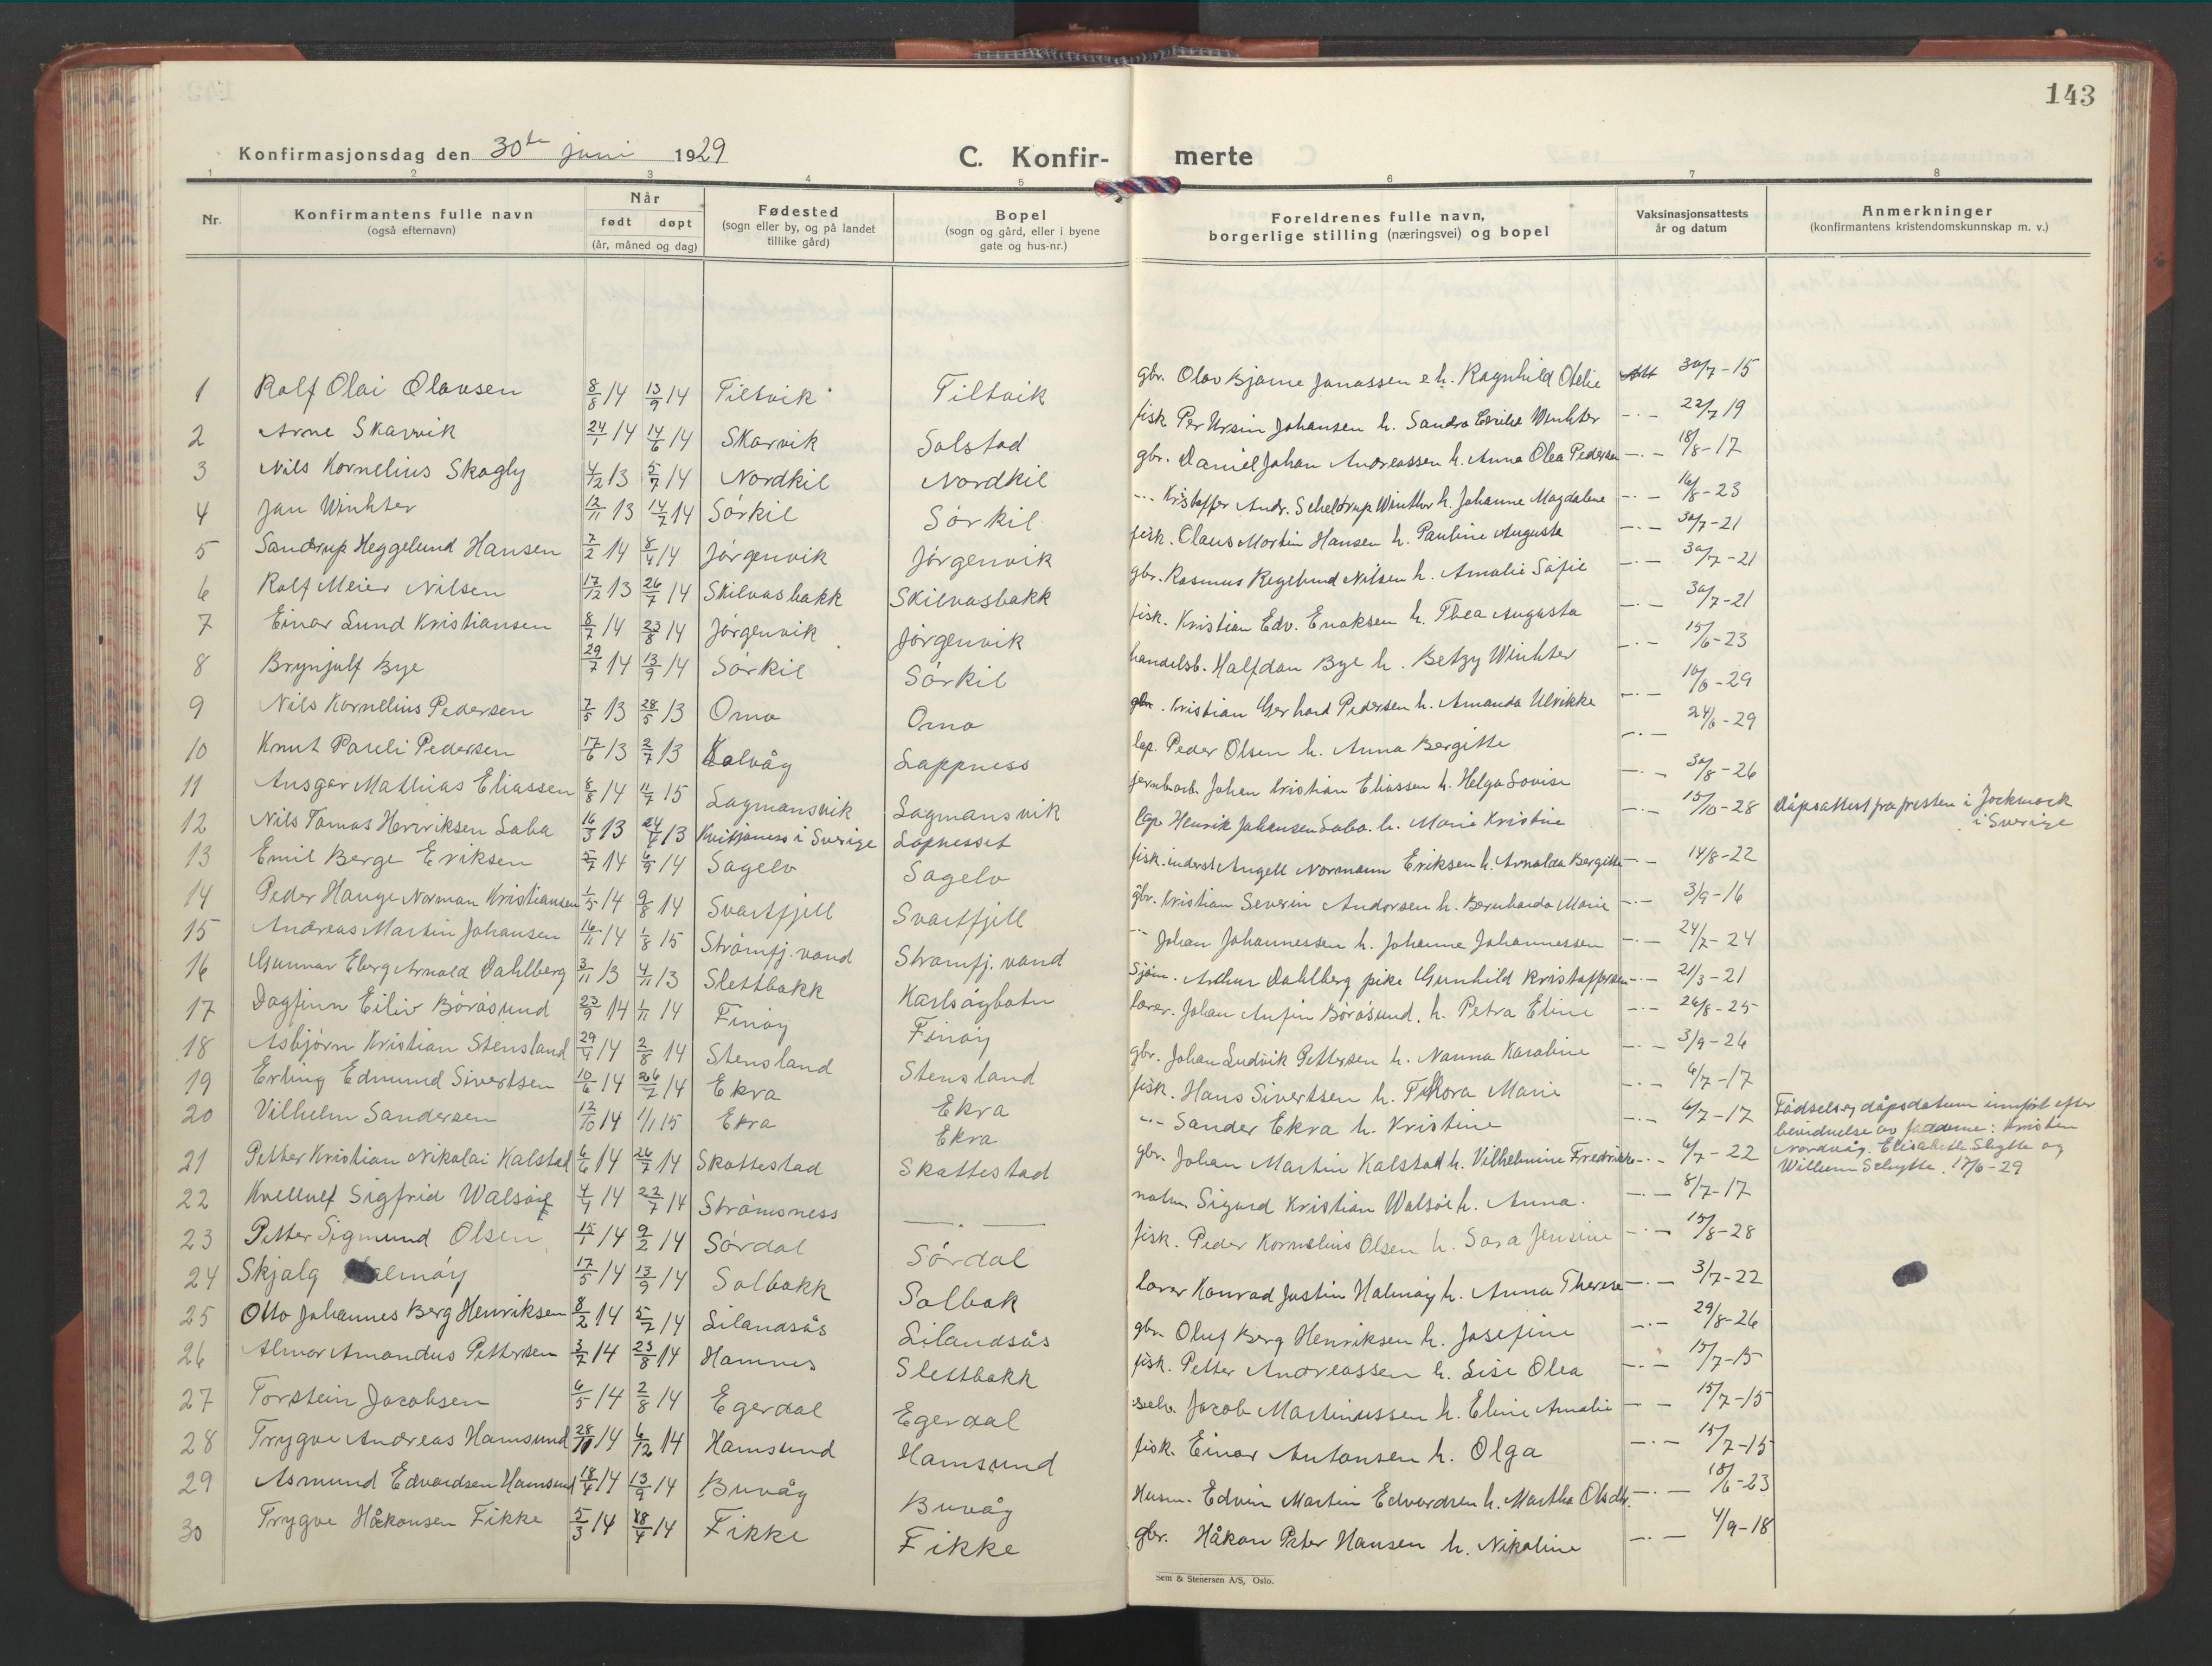 143
Konfirmasjonsdag den 30te juni 1929
C. Konfir- merte
1 2 3 4 5 6 7 8
Nr.
Konfirmantens fulle navn
(også efternavn)
Når
født døpt
(år, måned og dag)
Fødested
(sogn eller by, og på landet
tillike gård)
Bopel
(sogn og gård, eller i byene
gate og hus-nr.)
Foreldrenes fulle navn,
borgerlige stilling (næringsvei) og bopel
Vaksinasjonsattests
år og datum
Anmerkninger
(konfirmantens kristendomskunnskap m. v.)
1 Rolf Olai Olavsen 8/8 14 13/9 14 Tiltvik Tiltvik gbr. Olav Bjarne Jonassen e h. Ragnhild Otelie 30/7-15
2 Arne Skarvik 24/1 14 14/6 14 Skarvik Solstad fisk. Per Ursin Johansen h. Sandra Winhter -.- 22/7 19
3 Nils Kornelius Skogly 4/12 13 5/7 14 Nordkil Nordkil gbr. Daniel Johan Andreassen h. Anna Olea Pedersen -.- 18/8-17
4 Jan Winhter 12/11 13 14/7 14 Sörkil Sörkil -.- Kristoffer Andr. Scheldrup Winther h. Johanne Magdalene -.- 16/8-23
5 Sandrup Heggelund Hansen 7/2 14 8/4 14 Jörgenvik Jörgenvik fisk. Claus Martin Hansen h. Pauline Augusta -.- 30/7-21
6 Rolf Meier Nilsen 17/12 13 26/7 14 Skilvasbakk Skilvasbakk gbr. Rasmus Regelund Nilsen h. Amalie Sofie -.- 30/7-21
7 Einar Lund Kristiansen 8/7 14 23/8 14 Jörgenvik Jörgenvik fisk. Kristian Edv. Enoksen h. Thea Augusta -.- 30/7-21
8 Brynjulf Bye 29/7 14 13/9 14 Sörkil Sörkil handelsb. Halfdan Bye h. Betzy Winhter -.- 15/6-23
9 Nils Kornelius Pedersen 7/5 13 28/5 13 Omo Omo gbr. Kristian Gerhard Pedersen h. Amanda Ulrikke -.- 10/6-29
10 Knut Pauli Pedersen 17/6 13 2/7 13 Kalvåg Lappness lap. Peder Olsen h. Anna Bergitte -.- 24/6-29
11 Ansgar Mathias Eliassen 8/8 14 11/7 15 Lagmansvik Lagmansvik jernb.arb. Johan Kristian Eliassen h. Helga Lovise -.- 30/8-26
12 Nils Tomas Henriksen Laba 16/3 13 24/4 13 i Sverige Lapnesset lap. Henrik Johansen Laba. h. Marie Kristine -.- 15/10-28 Dåpsattest fra presten i Jockmock
i Sverige
13 Emil Berge Eriksen 5/7 14 6/9 14 Sagelv Sagelv fisk. inderst Angell Normann Eriksen h. Arnalda Bergitte -.- 14/8-22
14 Peder Hauge Norman Kristiansen 1/5 14 9/8 14 Svartfjell Svartfjell gbr. Kristian Severin Andorsen h. Bernharda Marie -.- 3/9-16
15 Andreas Martin Johansen 16/11 14 1/8 15 Strömfj. vand Strömfj. vand -.- Johan Johannessen h. Johanne Johannessen -.- 24/7-24
16 Gunnar Eberg Arnold Dahlberg 3/11 13 4/11 13 Slettbakk Karlsöybotn Sjöm. Arthur Dahlberg pike Gunhild Kristoffersen -.- 21/3-21
17 Dagfinn Eiliv Börösund 23/9 14 1/11 14 Finöy Finöy lærer. Johan Anfin Börösund. h. Petra Eline -.- 26/8-25
18 Asbjørn Kristian Stensland 29/4 14 2/8 14 Stensland Stensland gbr. Johan Ludvik Pettersen h. Nanna Karoline -.- 3/9-26
19 Erling Edmund Sivertsen 10/6 14 26/7 14 Ekra Ekra fisk. Hans Sivertsen h. Marie -.- 6/7-17
20 Vilhelm Sandersen 12/10 14 1/11 15 Ekra Ekra -.- Sander Ekra h. Kristine -.- 6/7-17 Födsels og dåpsdatum innfört efter
bevidnelse av fadderne: Kristen
Nordvåg, Elisabeth Skytte og
Willum Schytte. 17/6-29
21 Petter Kristian Nikolai Kalstad 6/6 14 26/7 14 Skottestad Skottestad gbr. Johan Martin Kalstad h. Vilhelmine Fredrikke -.- 6/7-22
22 Kvellulf Sigfrid Walsöe 4/4 14 22/7 14 Strömsness -.- Sigurd Kristian Walsöe h. Anna. -.- 8/7-17
23 Petter Sigmund Olsen 15/1 14 9/2 14 Sördal Sördal fisk. Peder Kornelius Olsen h. Sara Jensine -.- 15/8-28
24 Skjalg Halmöy 17/5 14 13/9 14 Solbakk Solbak lærer Konrad Justin Halmöy h. Anna Therese -.- 3/7-22
25 Otto Johannes Berg Henriksen 8/2 14 5/7 14 Lilandsås Lilandsås gbr. Oluf Berg Henriksen h. Josefine -.- 29/8-26
26 Almar Amandus Pettersen 3/7 14 23/8 14 Hamnes Slettbakk fisk. Petter Andreassen h. Lise Olea -.- 15/7-15
27 Torstein Jacobsen 6/5 14 2/8 14 Egerdal Egerdal selv. Jacob Martinussen h. Eline Amalie -.- 15/7-15
28 Trygve Andreas Hamsund 28/10 14 6/12 14 Hamsund Hamsund fisk. Einar Antonsen h. Olga -.- 15/7-15
29 Asmund Edvardsen Hamsund 18/4 14 13/9 14 Buvåg Buvåg Husm. Edvin Martin Edvardsen h. Martha Olsdtr. -.- 18/6-23
30 Trygve Håkonsen Fikke 5/3 14 18/4 14 Fikke Fikke gbr. Håkon Peter Hansen h. Nikoline -.- 4/9-18
Sem & Stenersen A/S, Oslo.